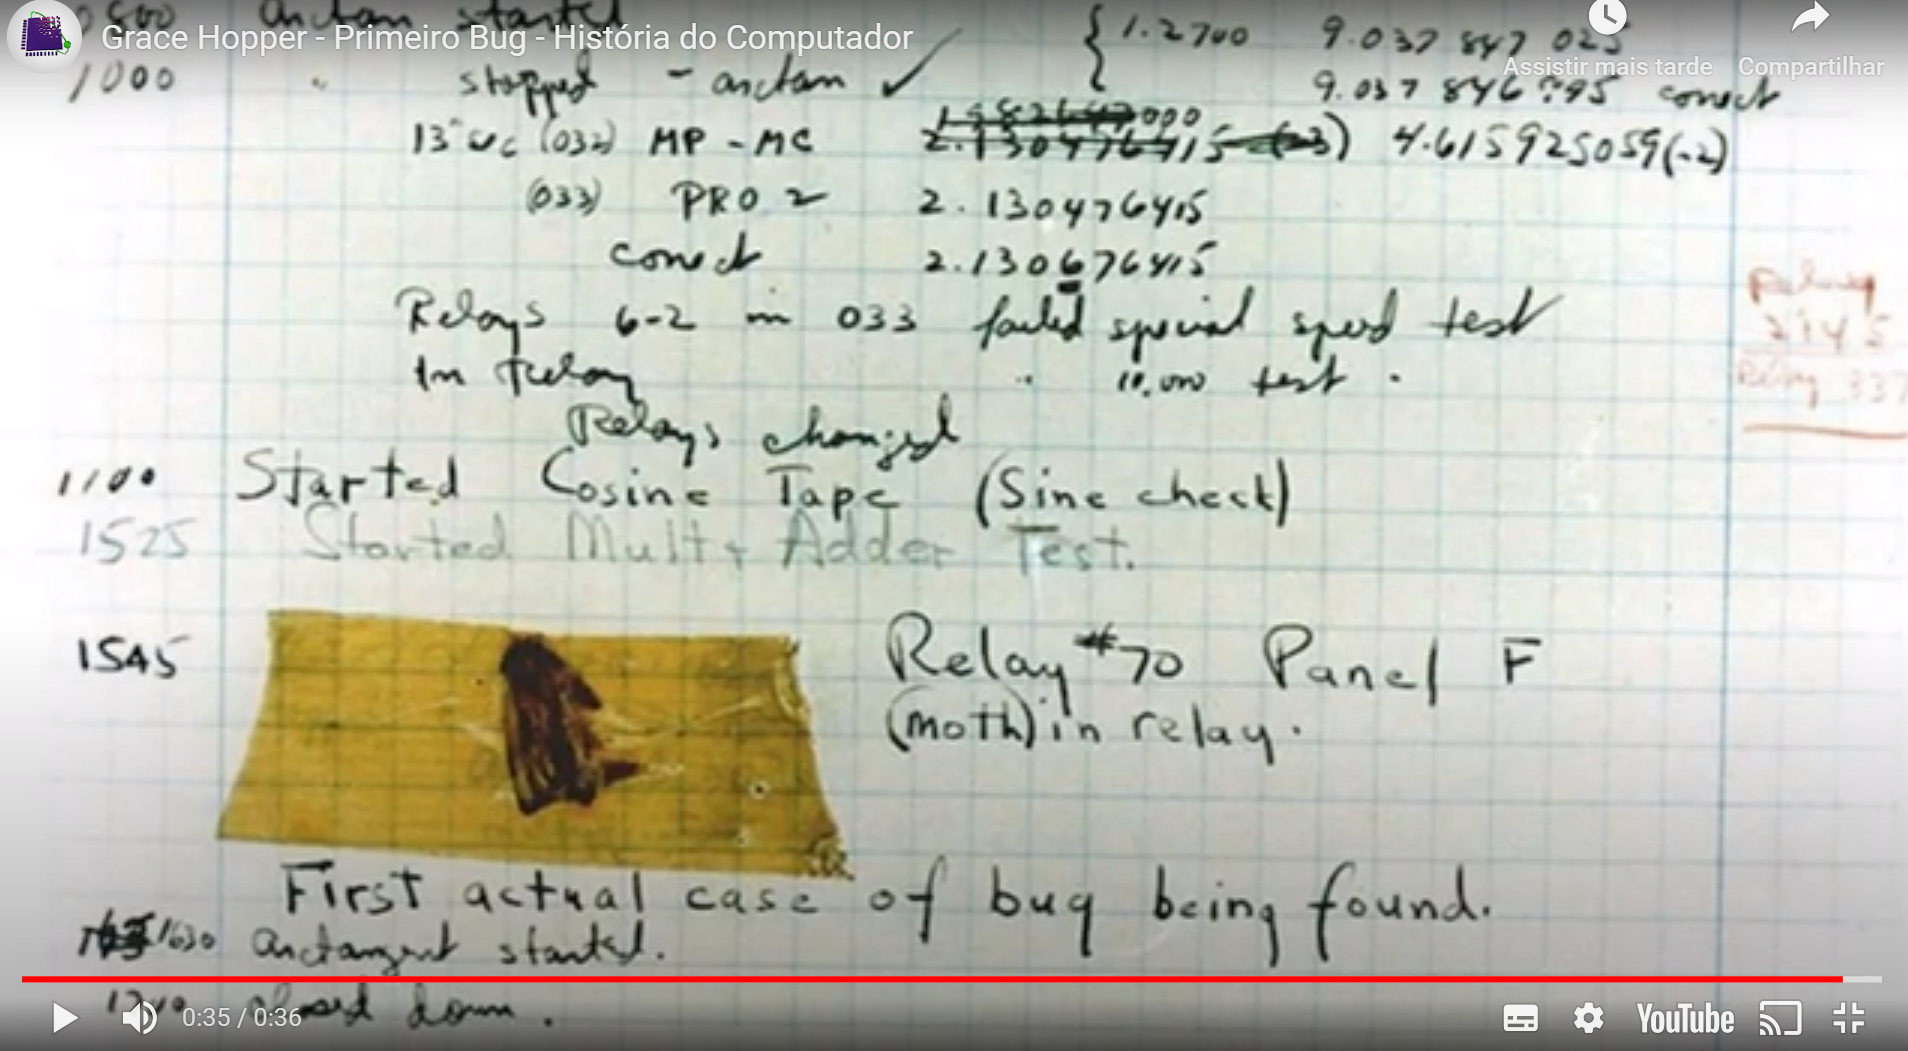 Grace Hopper - Primeiro Bug - História do Computador
Assistir mais tarde Compartilhar
0800 arctan started
{ 1.2700 9.037 847 025
1000 " stopped - arctan ✓ 9.037 846 995 correct
13" uc (032) MP - MC 2.130476415 (-3) 4.615925059(-2)
(033) PRO 2 2.130476415
correct 2.130676415
Relays 6-2 in 033 failed special speed test
In Relay " 10.000 test .
Relays changed
Relay
2145
Relay 337
1100 Started Cosine Tape (Sine check)
1525 Started Mult + Adder Test.
1545 Relay #70 Panel F
(moth) in relay.
First actual case of bug being found.
1630 arctangent started.
closed down .
0:35 / 0:36
YouTube